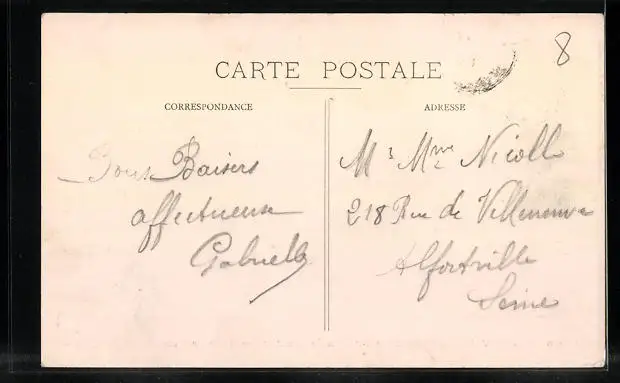 8
CARTE POSTALE
CORRESPONDANCE
Bons Baisers
affectueux
Gabrielle
ADRESSE
Mr Mme Nicolle
218 Rue de Villeneuve
Alfortville
Seine